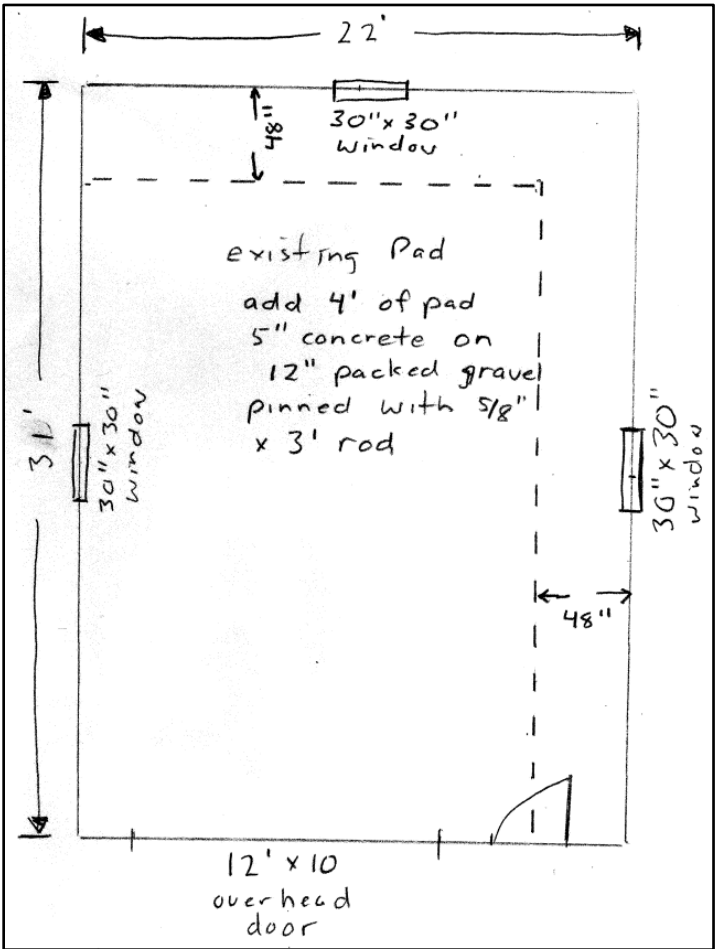 22'
48"
30" x 30"
window
existing Pad
add 4' of pad
5" concrete on
12" packed gravel
pinned with 5/8"
x 3' rod
31'
30" x 30"
window
30" x 30"
window
48"
12' x 10
overhead
door